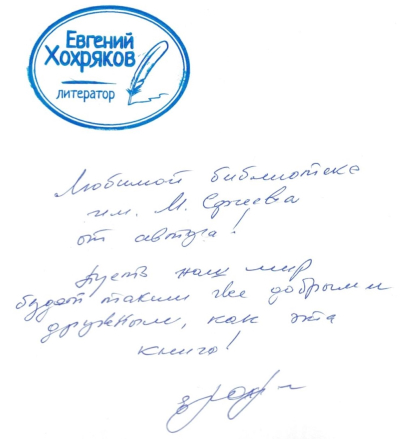 Евгений
Хохряков
литератор
Любимой библиотеке
им. М. Сергеева
от автора!
Пусть наш мир
будет таким же добрым и
дружным, как эта
книга!